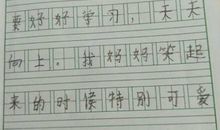 要好好学习，天天
向上。找好好笑起
来的时候特别可爱